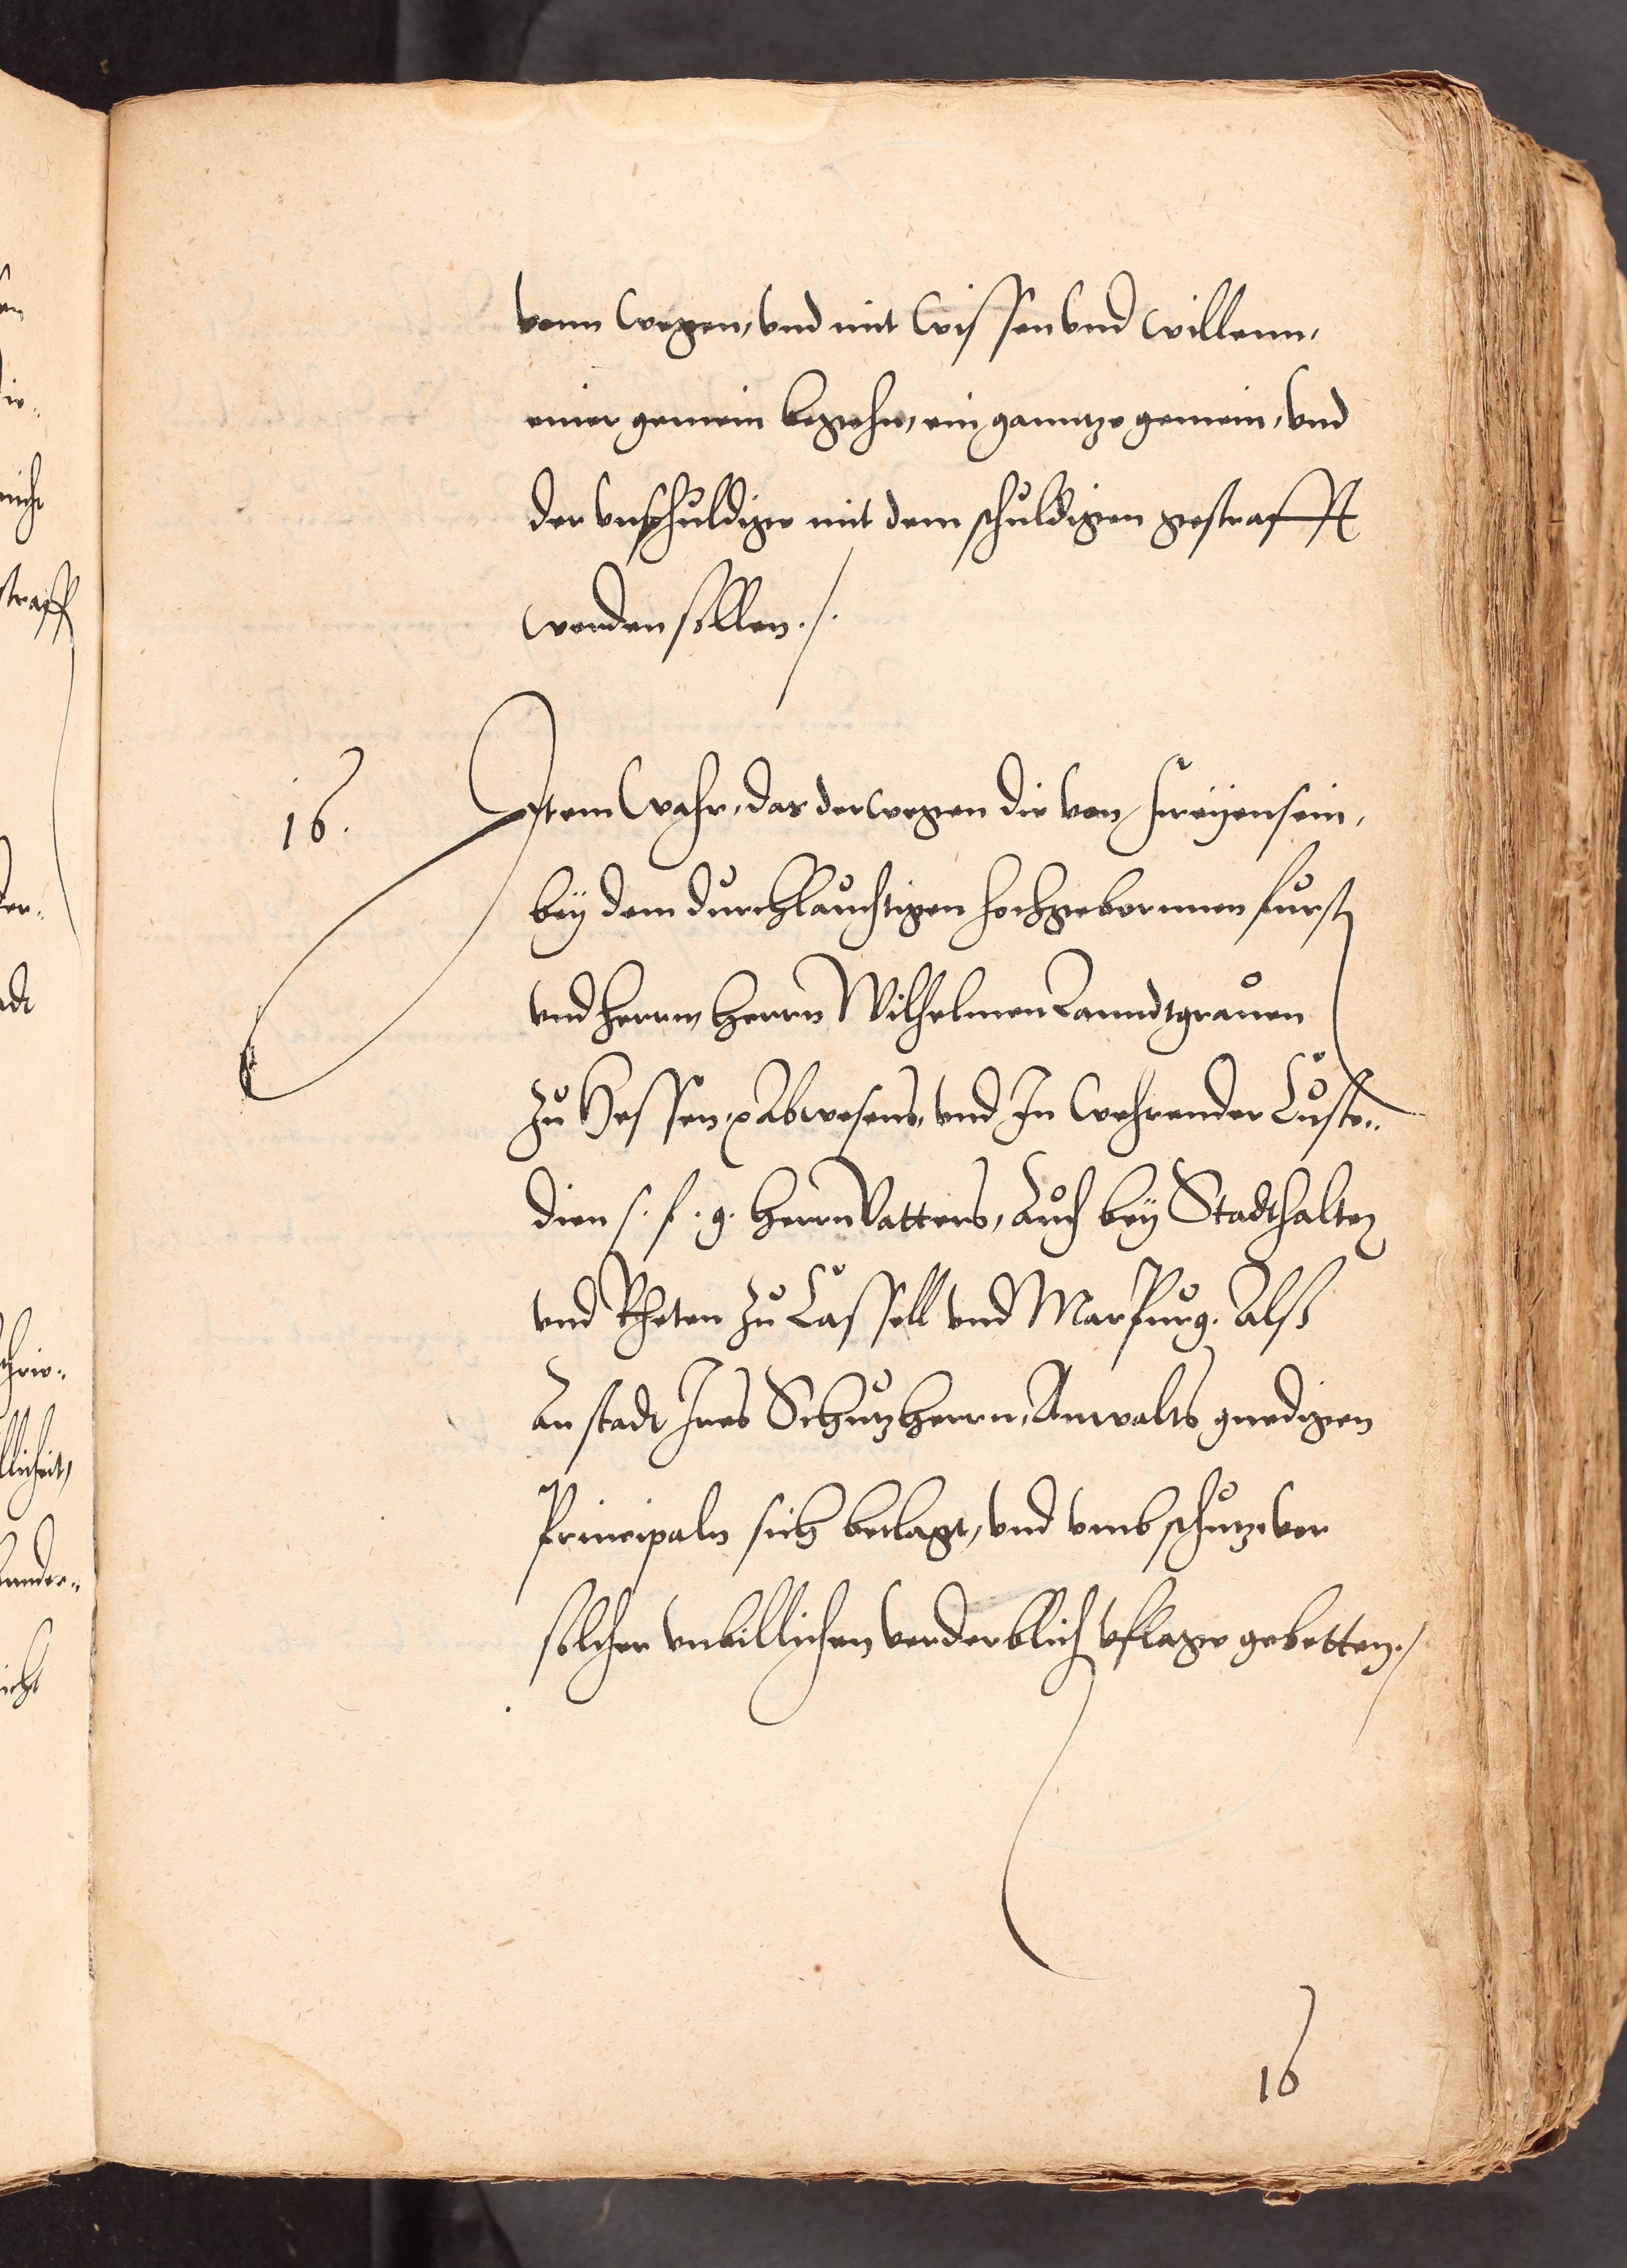 vonn wegen, vnd mit wissen vnd willenn,
einer gemein beziehn, ein ganntze gemein, vnd
der vnschuldige mit dem schuldigen gestrafft
werden sollen ./.
16.
Item wahr, das derwegen die von Freyensein,
bey dem durchlauchtigen hochgebornnen furst
vnd herrn, herrn Wilhelmen Lanndtgrauen
zu Hessen, Abwesens, vnd In wehrender Custo-
dien s. f. g. herrn Vatters, Auch bey Stadthalter
vnd Rheten zu Cassell vnd Marpurg. Alss
An stadt Ires Schutzherrn, Anwalts gnedigen
Principaln sich beclagt, vnd vmb schutz vor
solcher vnbillichen verderblich vflage gebetten ./
16